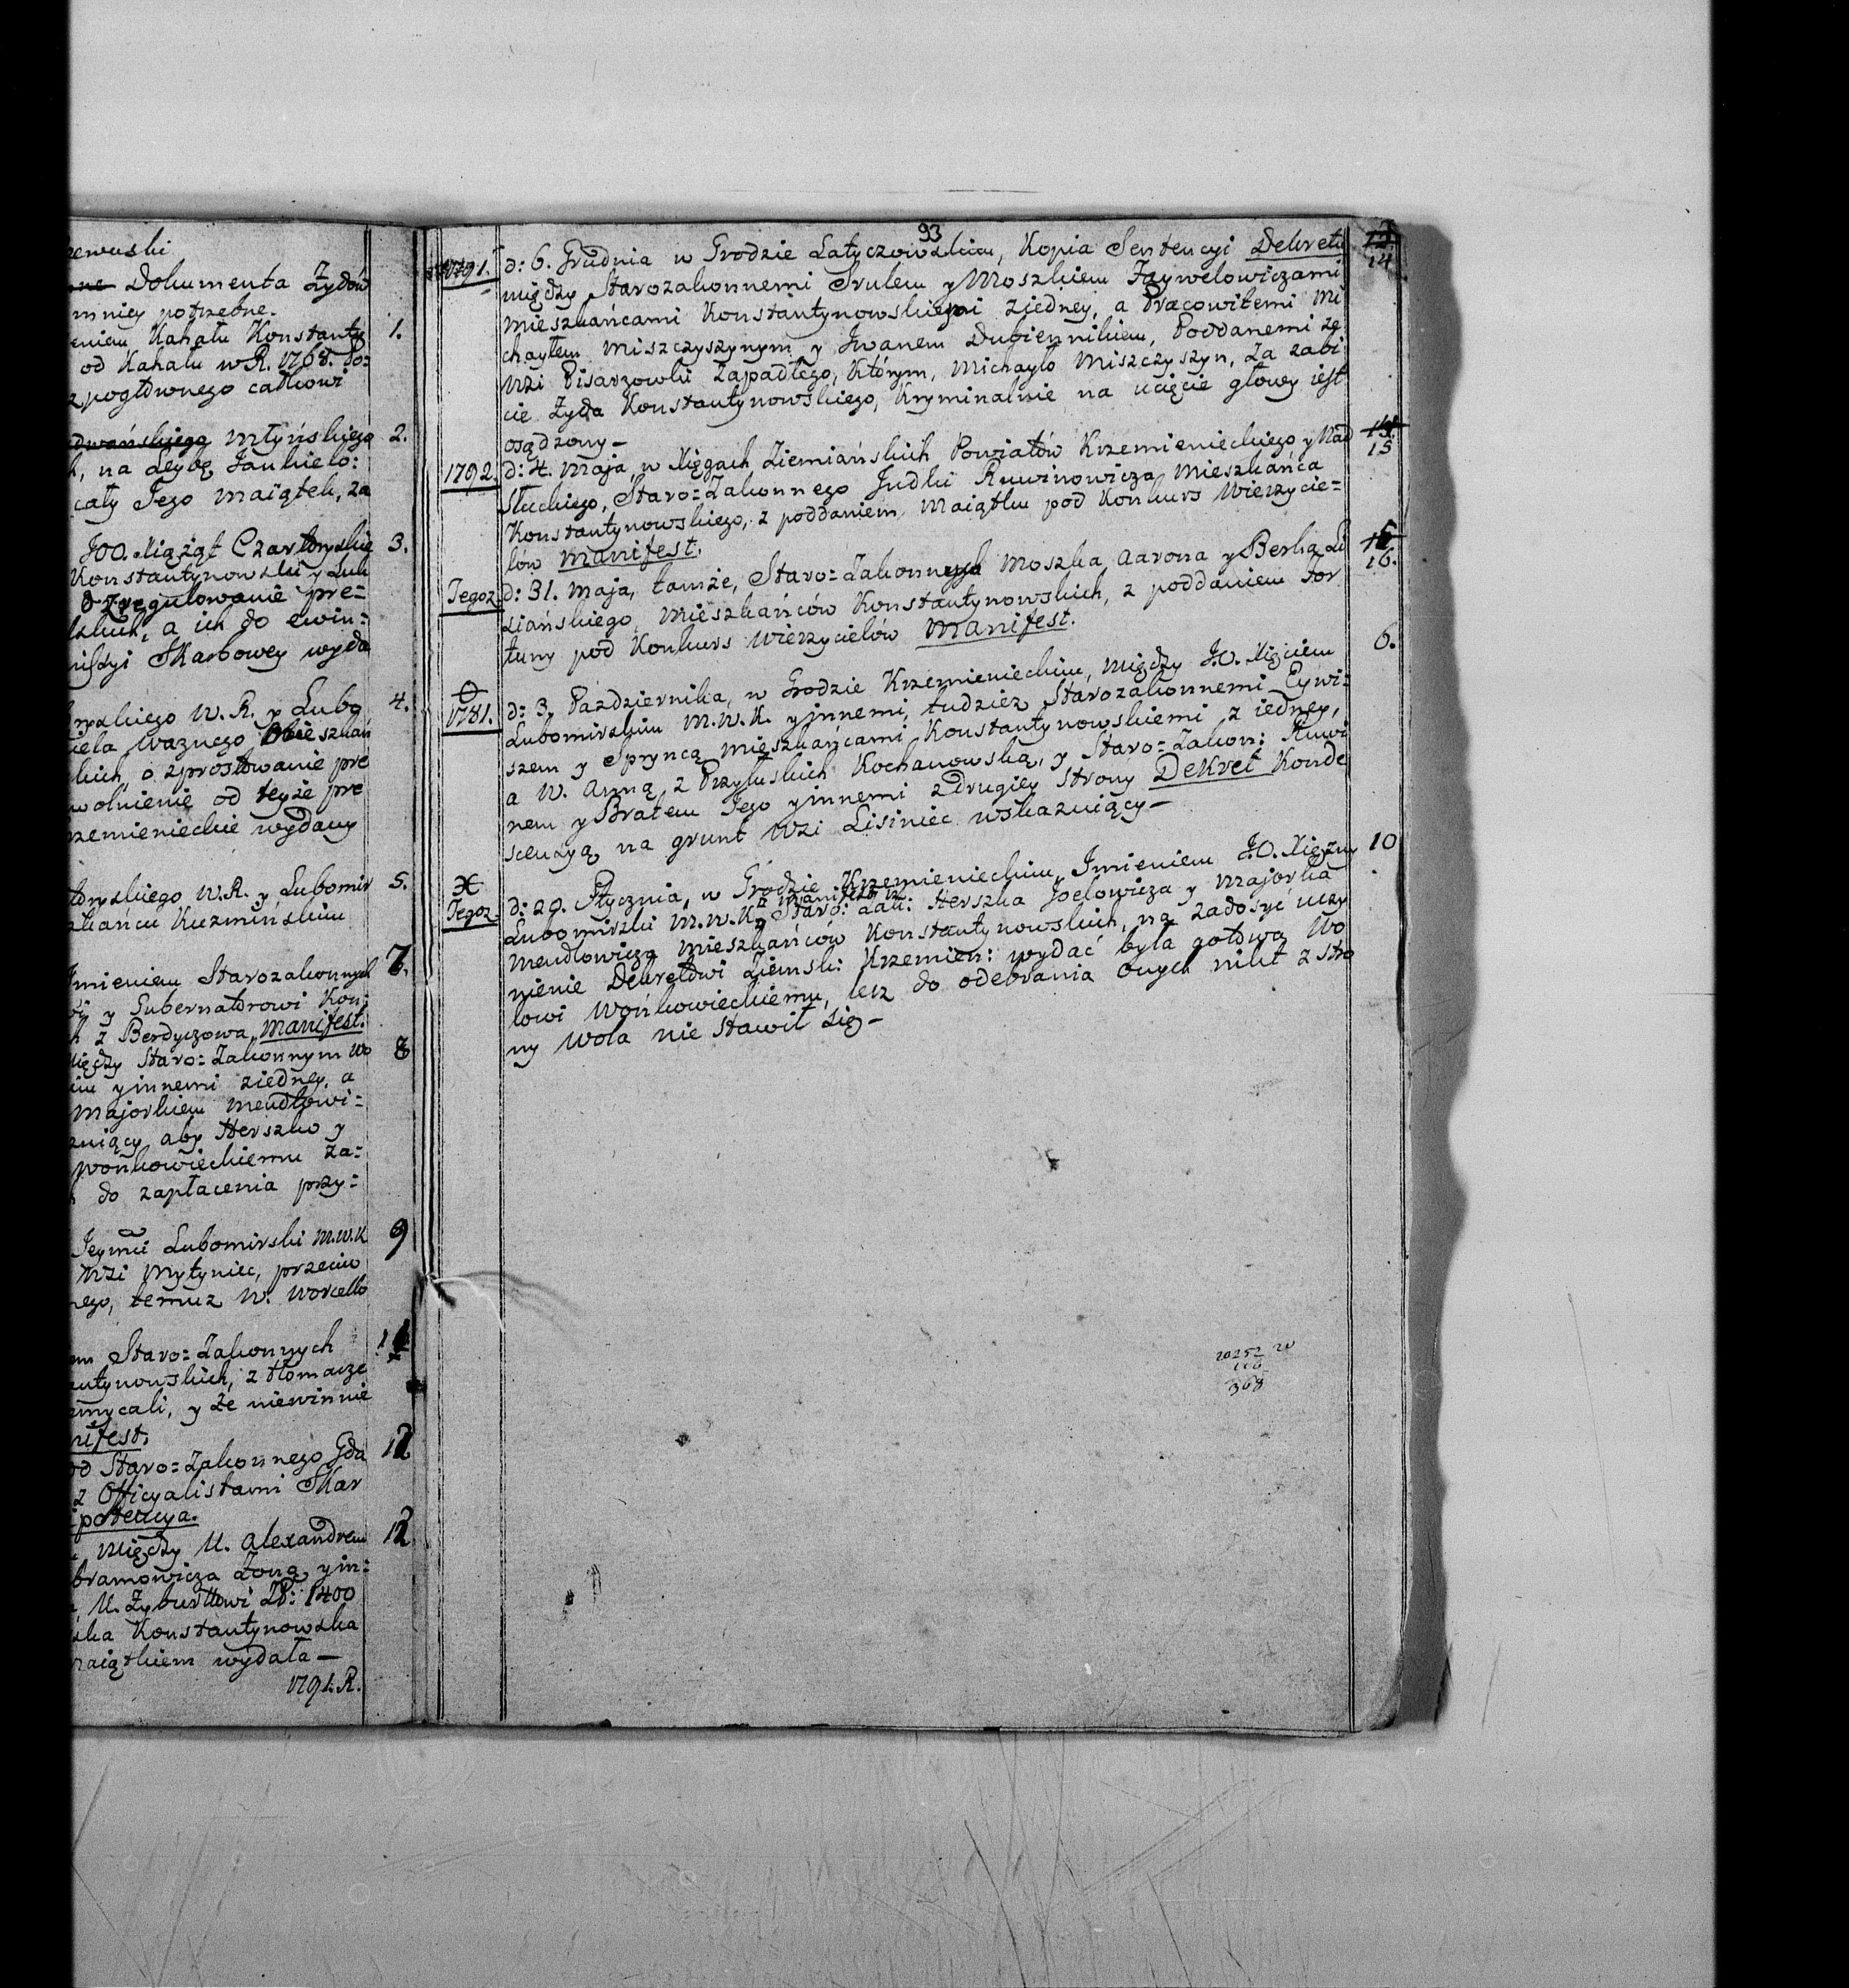 zewuski
Dokumenta Żydów
mniey potrzebne.
eniem Kahału Konstanty 1.
od Kahału w R. 1768. Po:
z pogłównego całkowi
Młyńskiego 2.
k, na Leybę Jankielo:
cały Jego Maiątek, za
JOO. Xiążąt Czartoryskie 3.
Konstantynowski y Luh
o zregulowanie pre=
lskich, a ich do ewin:
missyi Skarbowey wyda
oryskiego W. R. y Lubo 4.
iela ważnego Mieszkań
skich, o sprostowanie pre
wolnienie od teyże pre
rzemienieckie wydany
toryskiego W. R. y Lubomir 5.
szkańcu Kuzmińskim
Imieniem Starozakonnych 7.
wi y Gubernatorowi Kon:
h z Berdyczowa, Manifest.
Między Staro=Zakonnym Wo 8
im y innemi ziedney, a
Majorkiem Mendlowi=
zuiący, aby Herszko y
Wońkowieckiemu za=
do zapłacenia przy=
Jeymći Lubomirski M.W.K 9
Wsi Mytyniec, przeciw
nego, temuż W. Worcello
em Staro=Zakonnych
antynowskich, z tłomacze
emycali, y że niewinnie
nifest.
od Staro=Zakonnego Gda 12
z Officyalistami Skar
ipotencya.
między U. Alexandrem 12
bramowicza Żoną, y in:
U. Zyburtowi Zł: 1400
ska Konstantynowska
maiątkiem wydała —
1791. R.
93
1791. d: 6. Grudnia w Grodzie Latyczowskim, Kopia Sentencyi Dekretu 14
między Starozakonnemi Srulem y Moszkiem Faywelowiczami
Mieszkańcami Konstantynowskiemi ziedney, a Pracowitemi Mi
chayłem Miszczyszynym y Iwanem Dubiennikiem, Poddanemi ze
Wsi Pisarzowki Zapadłego, Którym, Michayło Miszczyszyn, Za zabi
cie Żyda Konstantynowskiego, Kryminalnie na ucięcie głowy iest
osądzony —
1792. d: 4. Maja w Xięgach Ziemiańskich Powiatów Krzemienieckiego y Nad 15
Słuckiego, Staro=Zakonnego Judki Ruwinowicza Mieszkańca
Konstantynowskiego, z poddaniem Maiątku pod Konkurs Wierzycie=
lów Manifest.
Tegoż d: 31. Maja, tamże, Staro=Zakonnych Moszka, Aarona y Berka Li 16.
siańskiego, Mieszkańców Konstantynowskich, z poddaniem For
tuny pod Konkurs Wierzycielów Manifest.
1781. d: 3. Października, w Grodzie Krzemienieckim, między J.O. Xięciem 6.
Lubomirskim M.W.K. y innemi, tudzież Starozakonnemi Eywi=
szem y Spryncą Mieszkańcami Konstantynowskiemi z iedney,
a W. Anną z Przyłuskich Kochanowską, y Staro=Zakon: Ruwi
nem y Bratem Jego y innemi z drugiey Strony Dekret Konde
scensyą na grunt Wsi Lisiniec wskazuiący —
Tegoż d: 29. Stycznia, w Grodzie Krzemienieckim, Imieniem J.O. Xiężny 10
Lubomirski M.W.K. Staro: Zak: Herszka Joelowicza y Majorka
Mendlowicza Mieszkańców Konstantynowskich, na zadosyć uczy
nienie Dekretowi Ziemsk: Krzemien: wydać była gotowa Wo
lowi Wońkowieckiemu, lecz do odebrania Onych nikt z stro
ny Wola nie stawił się —
20252
368